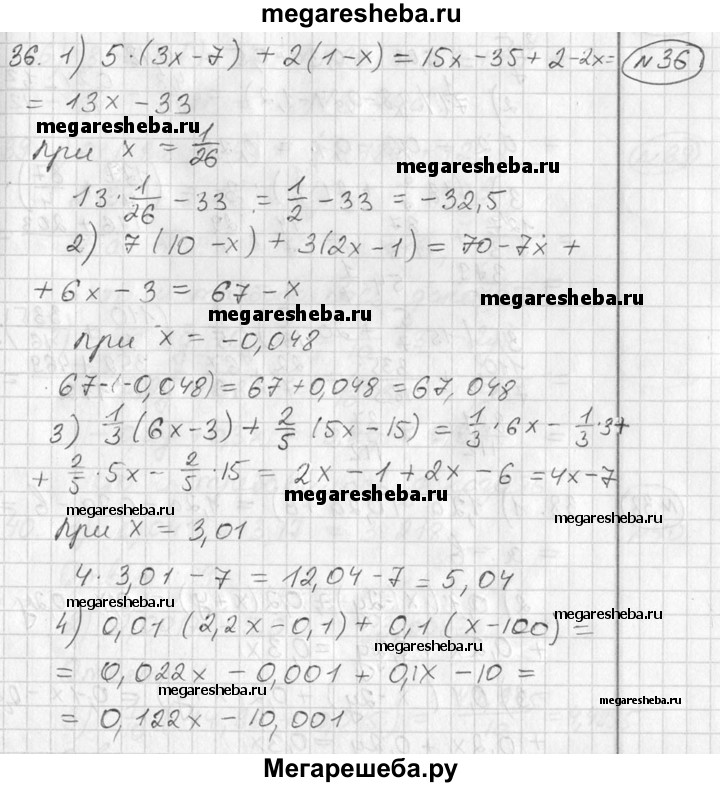 megaresheba.ru
36. 1) 5·(3x-7) + 2(1-x) = 15x-35+2-2x= №36
= 13x - 33
megaresheba.ru
при x = 1/26
megaresheba.ru
13·1/26 - 33 = 1/2 - 33 = -32,5
2) 7(10-x) + 3(2x-1) = 70-7x +
+ 6x - 3 = 67 - x
megaresheba.ru
megaresheba.ru
при x = -0,048
67-(-0,048) = 67+0,048 = 67,048
3) 1/3 (6x-3) + 2/5 (5x-15) = 1/3·6x - 1/3·3+
+ 2/5·5x - 2/5·15 = 2x - 1 + 2x - 6 = 4x-7
megaresheba.ru
megaresheba.ru
megaresheba.ru
при x = 3,01
4·3,01 - 7 = 12,04 - 7 = 5,04
megaresheba.ru
megaresheba.ru
4) 0,01 (2,2x-0,1) + 0,1 (x-100) =
megaresheba.ru
= 0,022x - 0,001 + 0,1x - 10 =
megaresheba.ru
megaresheba.ru
= 0,122x - 10,001
Мегарешеба.ру